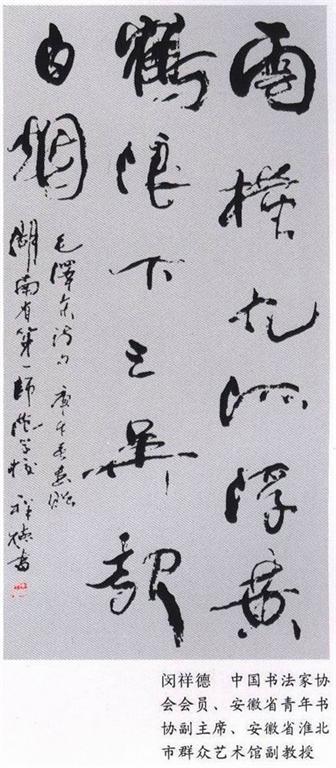 雲橫九派浮黄
鶴浪下三吴起
白烟
毛澤东诗句 庚午
湖南省第一师范学校 祥德書
闵祥德 中国书法家协
会会员、安徽省青年书
协副主席、安徽省淮北
市群众艺术馆副教授